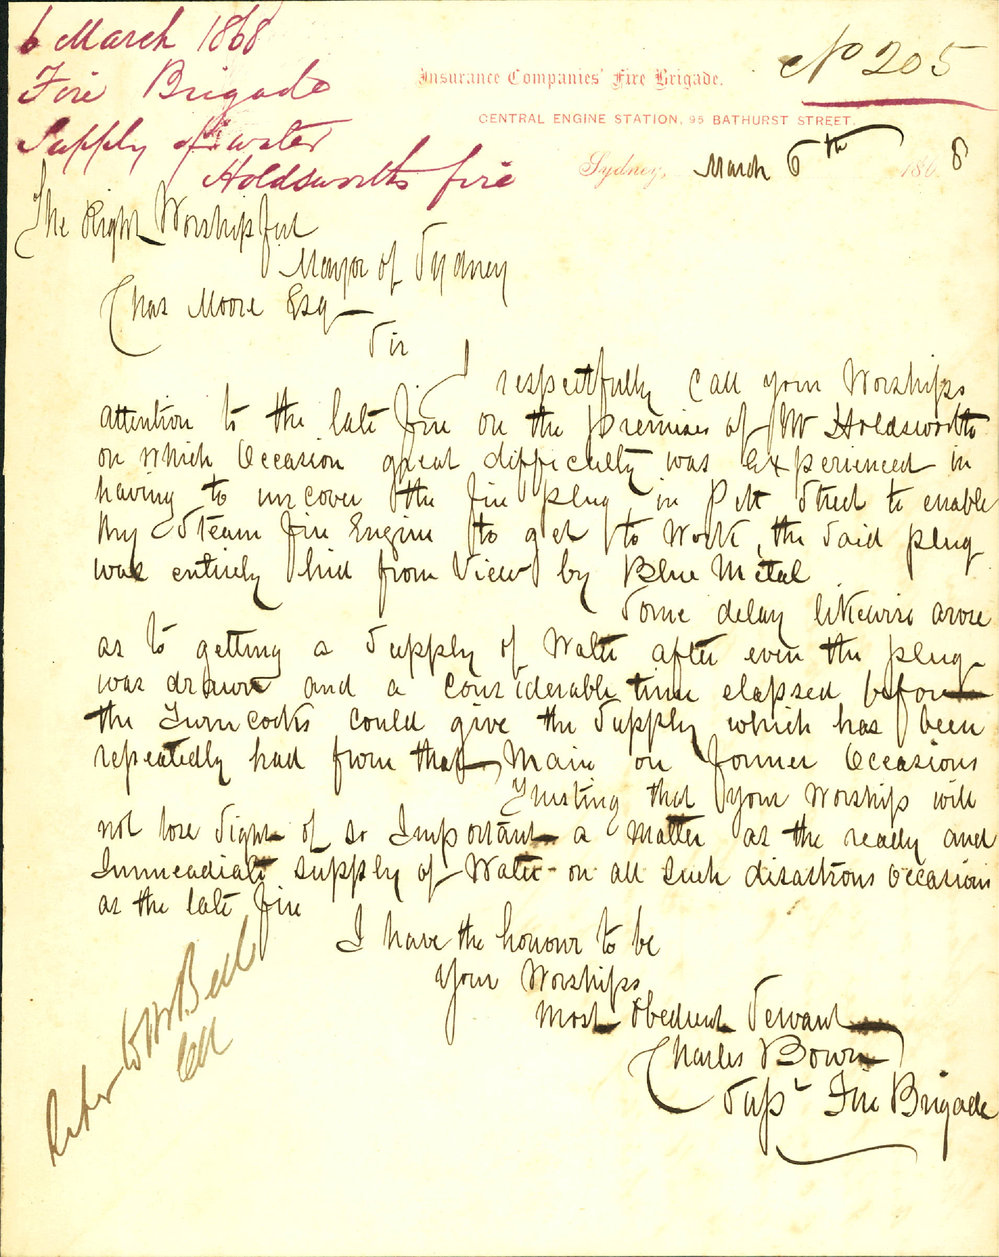 6 March 1868
Fire Brigade
Supply of water
Holdsworths fire
No 205
Insurance Companies' Fire Brigade.
CENTRAL ENGINE STATION, 95 BATHURST STREET.
Sydney, March 6th 1868
The Right Worshipful
Mayor of Sydney
Chas Moore Esq
Sir
I respectfully call your Worships
attention to the late fire on the premises of Mr Holdsworth
on which Occasion great difficulty was Experienced in
having to uncover the fire plug in Pitt Street to enable
my Steam Fire Engine to get to Work, the said plug
was entirely hid from View by Blue Metal
Some delay likewise arose
as to getting a Supply of Water after even the plug
was drawn and a considerable time elapsed before
the Turncocks could give the Supply which has been
repeatedly had from that Main on former Occasions
Trusting that your Worship will
not lose Sight of so Important a matter as the ready and
Immeadiate supply of Water on all such disastrous occasions
as the late fire
I have the honour to be
Your Worships
Most Obedient Servant
Charles Bown
Supt Fire Brigade
Refer to Mr Bell
CM